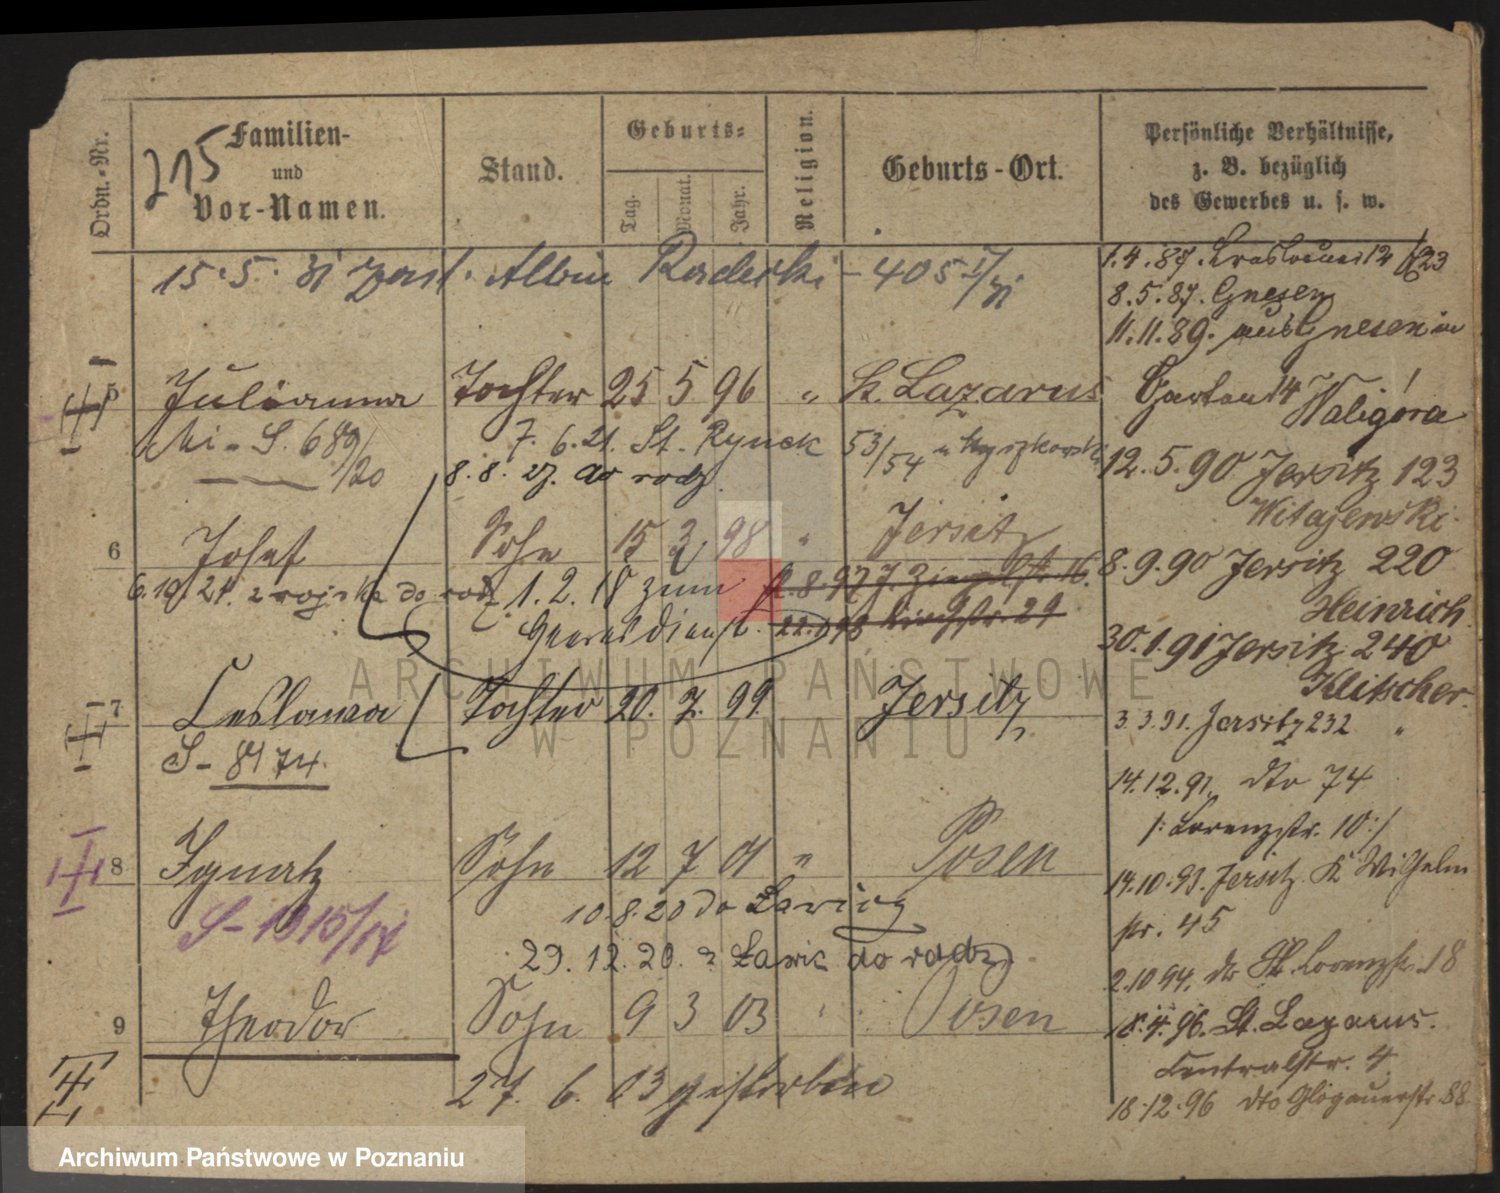 Ordn.-Nr.
Familien-
und
Vor-Namen.
215
Stand.
Geburts-
Tag.
Monat.
Jahr.
Religion.
Geburts-Ort.
Persönliche Verhältnisse,
z. B. bezüglich
des Gewerbes u. s. w.
15.5.31 zast. Albin Raderki - 405
5 Julianna Tochter 25 5 96 " St. Lazarus
S. 689/20 7. 6. 21. St. Rynek 53/54
8. 8. 27. do rodz.
6 Josef Sohn 15 3 98 " Jersitz
6.10 21. z wojska do rodz 1. 2. 18 zum
Heeresdienst.
7 Leslawa Tochter 20. 7. 99. Jersitz
S- 8174.
8 Ignatz Sohn 12 7 01 " Posen
S-1315/17
10.8.20 do Ławicy
29. 12. 20. z Ławic do rodz
9 Theodor Sohn 9 3 03 " Posen
27. 6. 03 gestorben
1.4.87.
8.5.87. Gnesen
11.11.89. aus Gnesen in
Garten 14 Waligóra
12.5.90 Jersitz 123
Witajewski.
8.9.90 Jersitz 220
Heinrich.
30.1.91 Jersitz 240
Klitscher.
3.3.91. Jersitz 232 "
14.12.91. dto 74
/: Lorenzstr. 10:/
14.10.93. Jersitz. K Wilhelm
str. 45
2.10 94. do Lorenzstr. 18
18.4.96. St. Lazarus.
Centralstr. 4.
18.12.96 dto Glogauerstr 88
ARCHIWUM PAŃSTWOWE
W POZNANIU
Archiwum Państwowe w Poznaniu